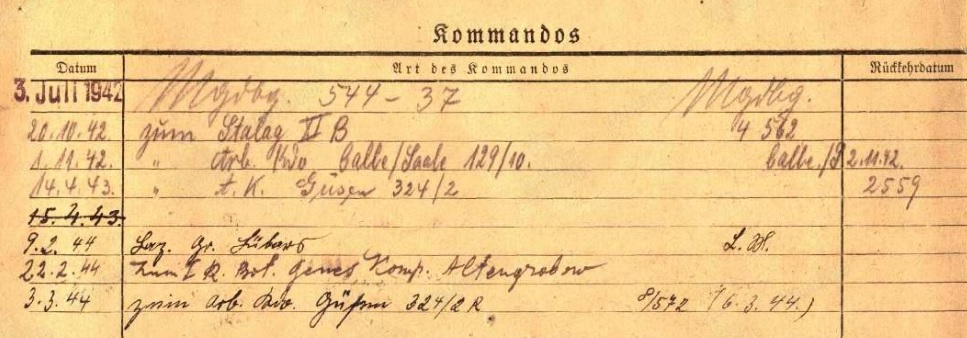 Kommandos
Datum Art des Kommandos Rückkehrdatum
3. Juli 1942 Mgdbg. 544-37 Mgdbg.
20.10.42. zum Stalag XI B 4 562
1.11.42. " Arb. Kdo Calbe/Saale 129/10. Calbe./S 2.11.42.
14.4.43. " A.K. Güsen 324/2 2559
15.4.43.
9.2.44 Laz. Gr. Lübars L.W.
22.2.44 zum Genes. Komp. Altengrabow
3.3.44 zum Arb. Kdo. Güsen 324/2 R 8/572 6.3.44.)